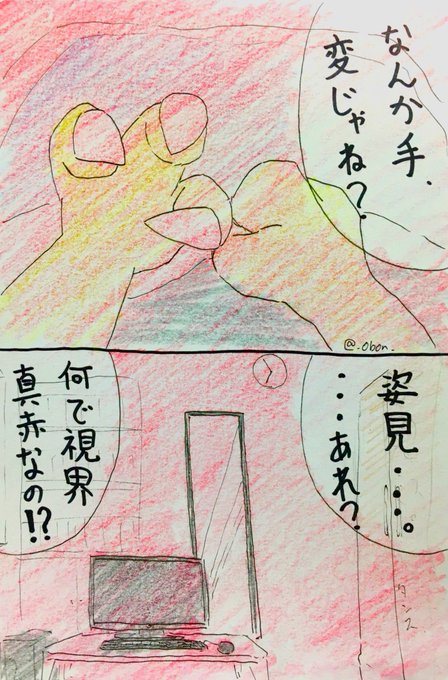 なんか手、
変じゃね？
@_obon_
姿見・・・。
・・・あれ？
何で視界
真赤なの!?
タンス